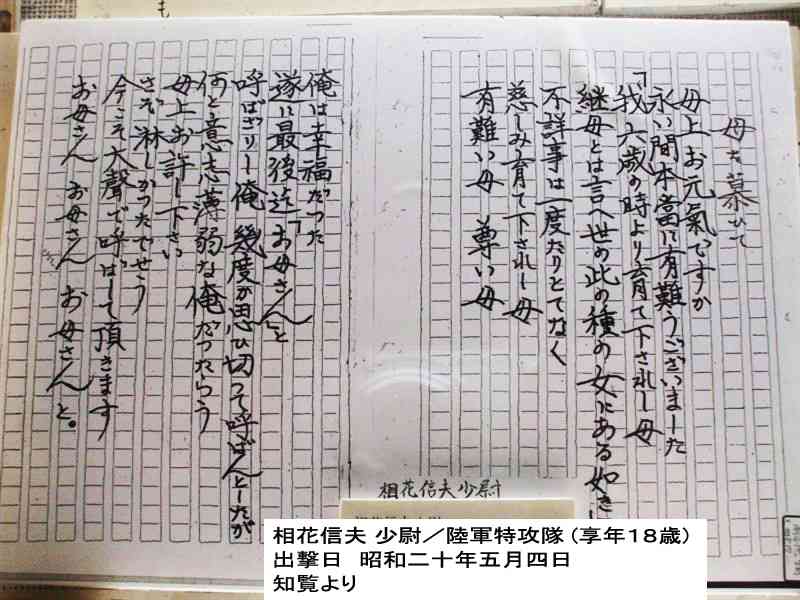 母を慕ひて
母上お元氣ですか
永い間本當に有難うございました
「我六歳の時より育て下されし母
継母とは言へ世の此の種の女にある如き
不詳事は一度たりとてなく
慈しみ育て下されし母
有難い母 尊い母
俺は幸福だった
遂に最後迄「お母さん」と
呼ばざりし俺 幾度か思ひ切って呼ばんとしたが
何と意志薄弱な俺だったらう
母上お許し下さい
さぞ淋しかったでせう
今こそ大聲で呼ばして頂きます
お母さん お母さん お母さんと。
相花信夫少尉
相花信夫 少尉／陸軍特攻隊（享年１８歳）
出撃日 昭和二十年五月四日
知覧より